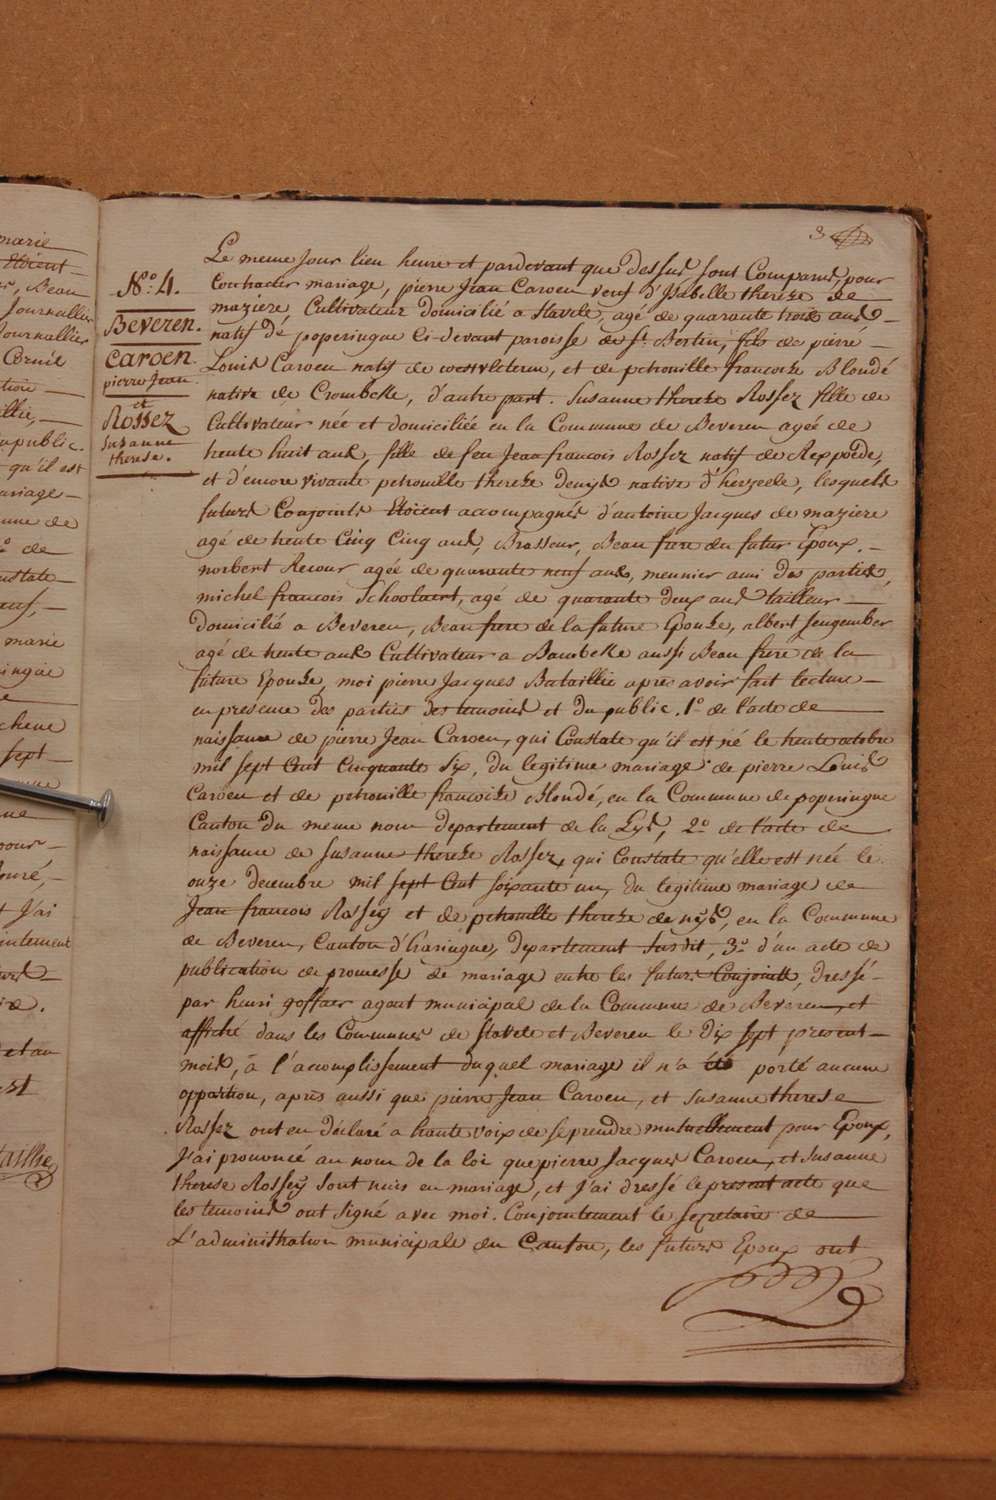 3
N.º 4.
Beveren.
Caroen
pierre Jean
et
Rossez
susanne
therese.
Le meme Jour lieu heure et pardevant que dessus sont Comparus, pour
Contracter mariage, pierre Jean Caroen veuf d'Isabelle thereze de
maziere, Cultivateur domicilié a Stavele, agé de quarante trois ans
natif dé poperingue Ci-devant paroisse de St. Bertin, fils de pierre
Louis Caroen natif de westvleteren, et de petronille francoise Blondé
native de Crombeke, d'autre part. Susanne thereze Rossez fille de
Cultivateur née et domiciliée en la Commune de Beveren agée de
trente huit ans, fille de feu Jean francois Rossez natif de Rexpoëde,
et d'encore vivante petronille thereze denys native d'herzeele, lesquels
futurs Conjoints Etoient accompagnés d'antoine Jacques de maziere
agé de trente Cinq Cinq ans, Brasseur, Beau frere du futur Epoux.
norbert Recour agée de quarante neuf ans, meunier ami des parties,
michel francois Schoolaert, agé de quarante deux ans tailleur
domicilié a Beveren, Beau frere de la future Epouse, albert Sengember
agé de trente ans Cultivateur a Bambeke aussi Beau frere de la
future Epouze, moi pierre Jacques Bataillie apres avoir fait lecture
en presence des parties des temoins et du public. 1º de l'acte de
naissance de pierre Jean Caroen, qui Constate qu'il est né le trente octobre
mil sept Cent Cinquante Six, du legitime mariage de pierre Louis
Caroen et de petronille francoise Blondé, en la Commune de poperingue
Canton du meme nom departement de la Lys, 2º de l'acte de
naissance de Susanne thereze Rossez, qui Constate qu'elle est née le
onze decembre mil sept Cent soixante un, du legitime mariage de
Jean francois Rossey et de petronille thereze de nys, en la Commune
de Beveren, Canton d'haringue, departement Susdit, 3º d'un acte de
publication de promesse de mariage entre les futurs Conjoints, dressé
par henri goffaer agent municipal de la Commune de Beveren, et
affiché dans les Communes de stavele et Beveren le dix sept present
mois, à l'acomplissement duquel mariage il n'a été porté aucune
opposition, après aussi que pierre Jean Caroen, et susanne therese
Rossez ont en déclaré a haute voix de se prendre mutuellement pour Epoux,
J'ai prononcé au nom de la loi que pierre Jacques Caroen, et susanne
therese Rossey sont unis en mariage, et j'ai dressé le present acte que
les temoins ont signé avec moi. Conjointement le secretaire de
L'administration municipale du Canton, les futurs Epoux ont